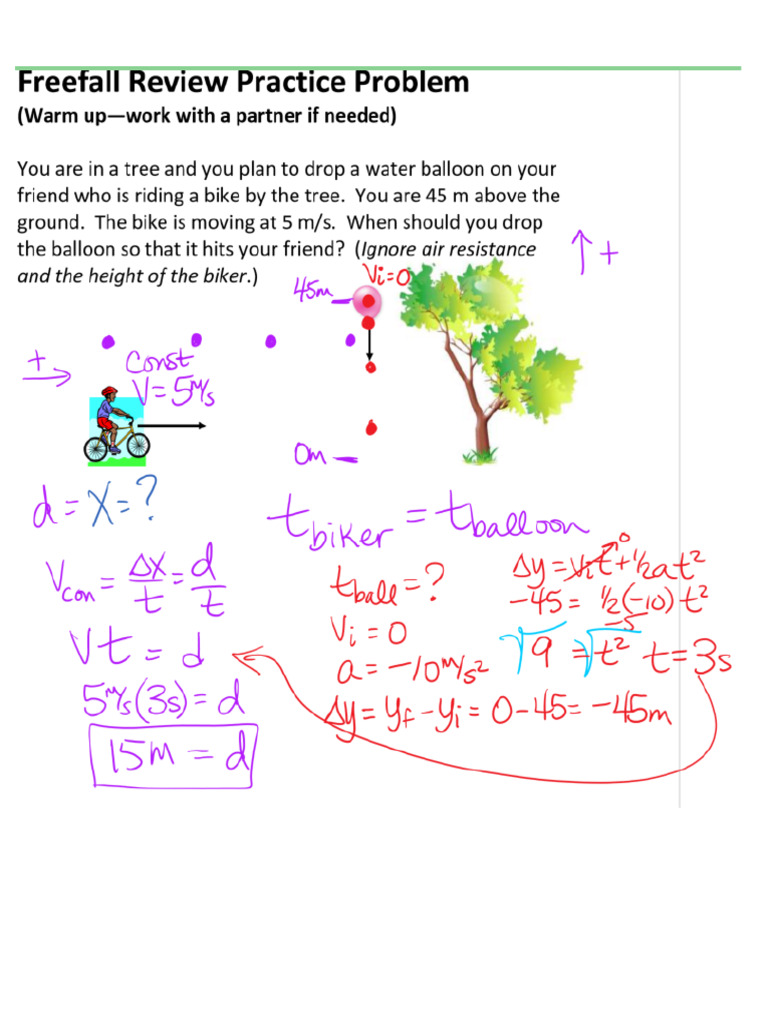 Freefall Review Practice Problem
(Warm up—work with a partner if needed)
You are in a tree and you plan to drop a water balloon on your
friend who is riding a bike by the tree. You are 45 m above the
ground. The bike is moving at 5 m/s. When should you drop
the balloon so that it hits your friend? (Ignore air resistance
and the height of the biker.)
↑ +
45m
Vi=0
+
→
Const
V = 5 m/s
0m
d = X = ?
t biker = t balloon
Vcon = Δx/t = d/t
t ball = ?
Δy = Vit + ½at²
0
-45 = ½(-10)t²
-5
Vt = d
Vi = 0
√9 = √t² t = 3s
a = -10 m/s²
5 m/s (3s) = d
Δy = yf - yi = 0 - 45 = -45m
15m = d